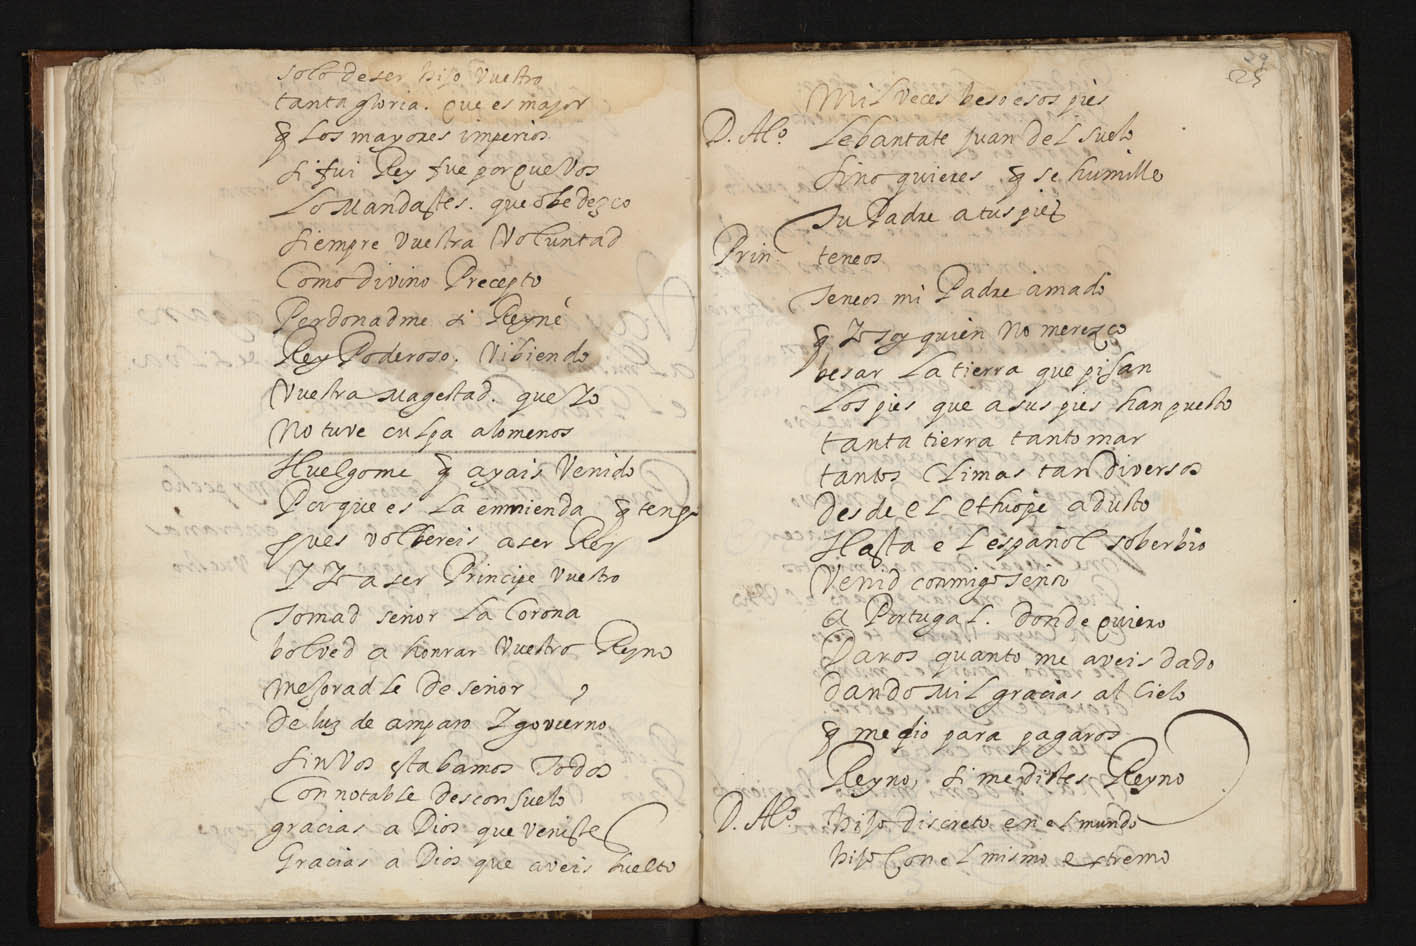 solo de ser hijo vuestro
tanta gloria. que es mayor
q̃ los mayores imperios
si fui Rey fue porque Vos
Lo Mandastes. que obedezco
siempre vuestra Voluntad
Como divino Precepto
Perdonadme si Reyné
Rey Poderoso. Vibiendo
Vuestra Magestad. que Yo
No tuve culpa alomenos
Huelgome q̃ ayais Venido
Porque es La enmienda q̃ tengo
pues volbereis a ser Rey
Y Yo a ser Principe Vuestro
Tomad señor La Corona
bolved a honrar Vuestro Reyno
mejoradle De señor
De luz de amparo Y govierno
sin Vos estabamos Todos
Con notable Desconsuelo
gracias a Dios que veniste
Gracias a Dios que aveis buelto
25
Mil veces beso esos pies
D. Alo. Lebantate Juan del suelo
si no quieres q̃ se humille
su Padre a tus piez
Prin. teneos
Teneos mi Padre amado
q̃ Yo soy quien No merezco
besar La tierra que pisan
Los pies que a sus pies han puesto
tanta tierra tanto mar
tantos Climas tan Diversos
Desde el ethiope adusto
Hasta el español soberbio
Venid conmigo señor
a Portugal. Donde quiero
Daros quanto me aveis dado
dando Mil gracias al Cielo
q̃ me dio para pagaros
Reyno, si me distes Reyno
D. Alo. hijo discreto en el mundo
hijo Con el mismo extremo